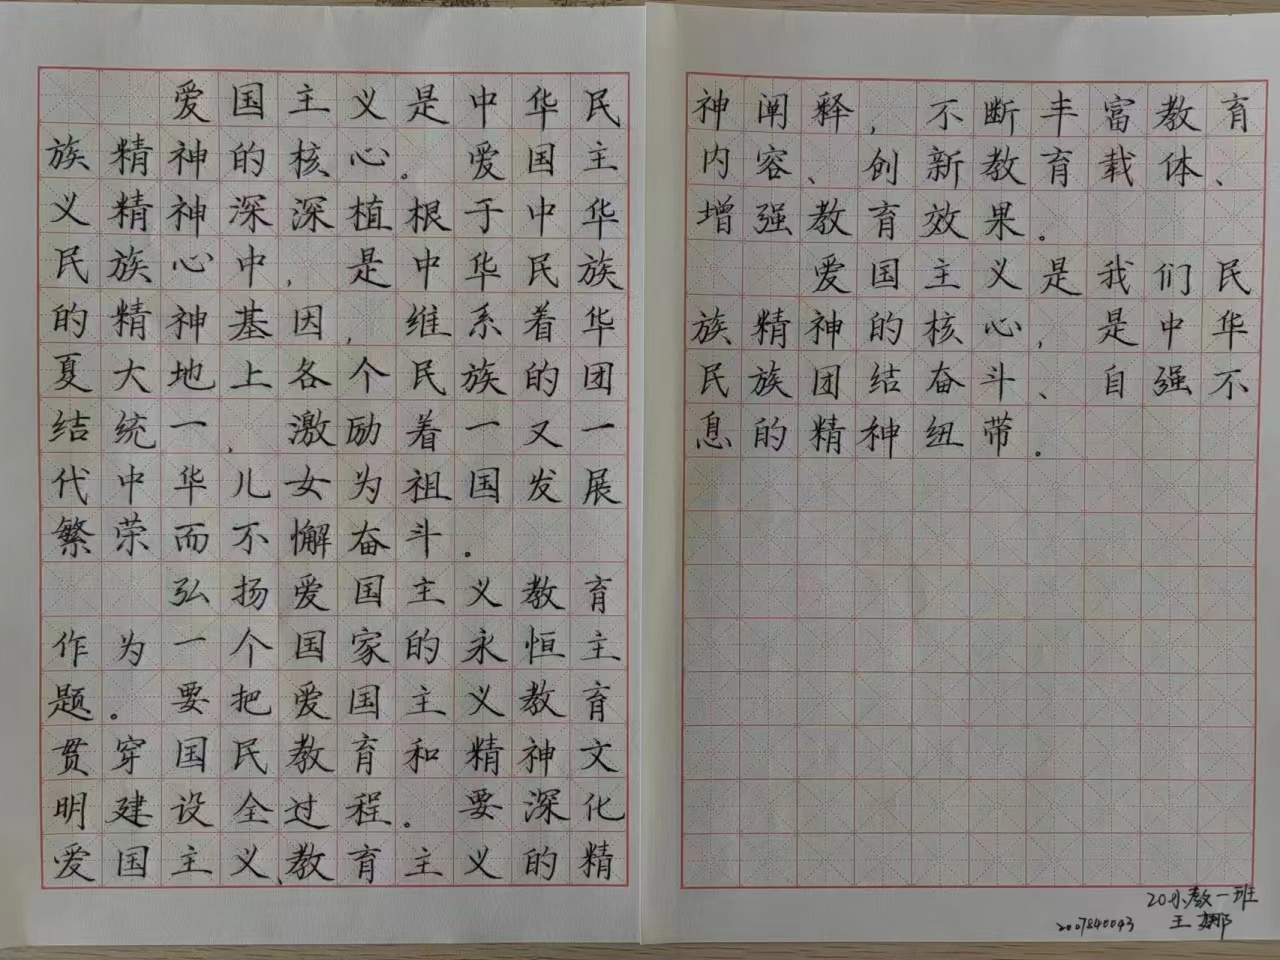 爱国主义是中华民
族精神的核心。爱国主
义精神深深植根于中华
民族心中，是中华民族
的精神基因，维系着华
夏大地上各个民族的团
结统一，激励着一又一
代中华儿女为祖国发展
繁荣而不懈奋斗。
弘扬爱国主义教育
作为一个国家的永恒主
题。要把爱国主义教育
贯穿国民教育和精神文
明建设全过程。要深化
爱国主义、教育主义的精
神阐释，不断丰富教育
内容、创新教育载体、
增强教育效果。
爱国主义是我们民
族精神的核心，是中华
民族团结奋斗、自强不
息的精神纽带。
20小教一班
2007840043 王娜